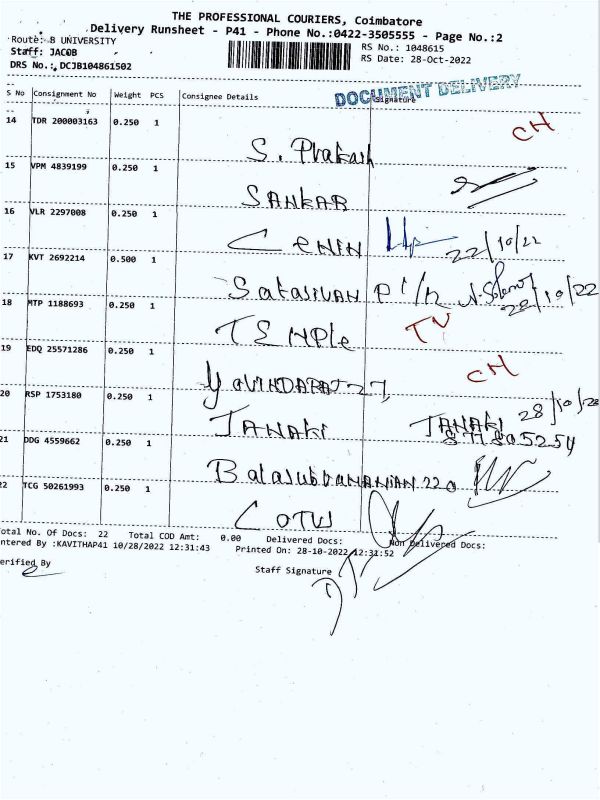 THE PROFESSIONAL COURIERS, Coimbatore
Delivery Runsheet - P41 - Phone No.:0422-3505555 - Page No.:2
Route: 8 UNIVERSITY
RS No.: 1048615
Staff: JACOB
RS Date: 28-Oct-2022
DRS No.: DCJB104861502
DOCUMENT DELIVERY
S No Consignment No Weight PCS Consignee Details Signature
14 TDR 200003163 0.250 1
S. Prakash CH
15 VPM 4839199 0.250 1
SANKAR
16 VLR 2297008 0.250 1
CENIN 22/10/22
17 KVT 2692214 0.500 1
Satasivan P 28/10/22
18 MTP 1188693 0.250 1
TEMPle TV
19 EDQ 25571286 0.250 1
CH
20 RSP 1753180 0.250 1
JANAKI JANAKI 28/10/28
21 DDG 4559662 0.250 1
Balasubramanian 220
22 TCG 50261993 0.250 1
COTW
Total No. Of Docs: 22 Total COD Amt: 0.00 Delivered Docs: Non Delivered Docs:
Entered By :KAVITHAP41 10/28/2022 12:31:43 Printed On: 28-10-2022 12:31:52
Verified By
Staff Signature